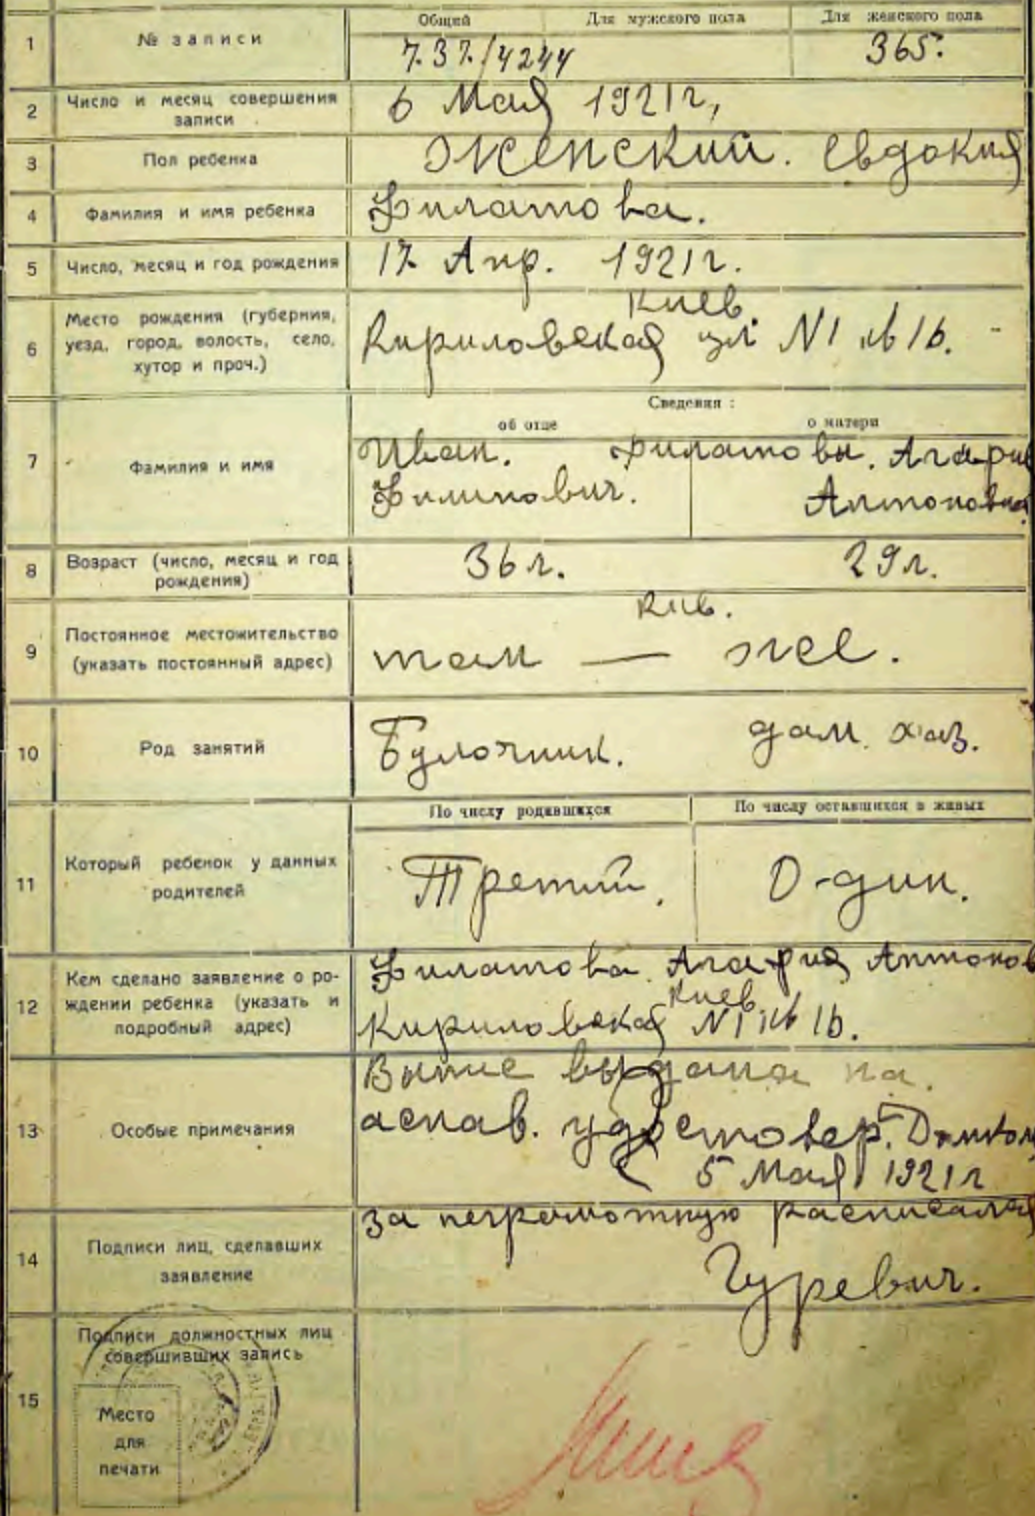 1 № записи Общий Для мужского пола Для женского пола
737/4244 365.
2 Число и месяц совершения записи 6 Мая 1921 г,
3 Пол ребенка Женский. Евдокия
4 Фамилия и имя ребенка Филатова.
5 Число, месяц и год рождения 17 Апр. 1921 г.
6 Место рождения (губерния, уезд, город, волость, село, хутор и проч.) Киев.
Кириловская ул N1 кв 16.
Сведения :
об отце о матери
7 Фамилия и имя Иван. Филатовы. Агафия
Филипович. Антоновна
8 Возраст (число, месяц и год рождения) 36 л. 29 л.
9 Постоянное местожительство (указать постоянный адрес) Киев.
там — же.
10 Род занятий Булочник. дом. хоз.
По числу родившихся По числу оставшихся в живых
11 Который ребенок у данных родителей Третий. О-дин.
12 Кем сделано заявление о рождении ребенка (указать и подробный адрес) Филатова Агафия Антонов
Киев
Кириловская N1 кв 16.
13 Особые примечания выдана на.
аснав. удостовер. Домком
5 Мая 1921 г
14 Подписи лиц, сделавших заявление За неграмотную расписался
Гуревич.
15 Подписи должностных лиц совершивших запись
Место
для
печати